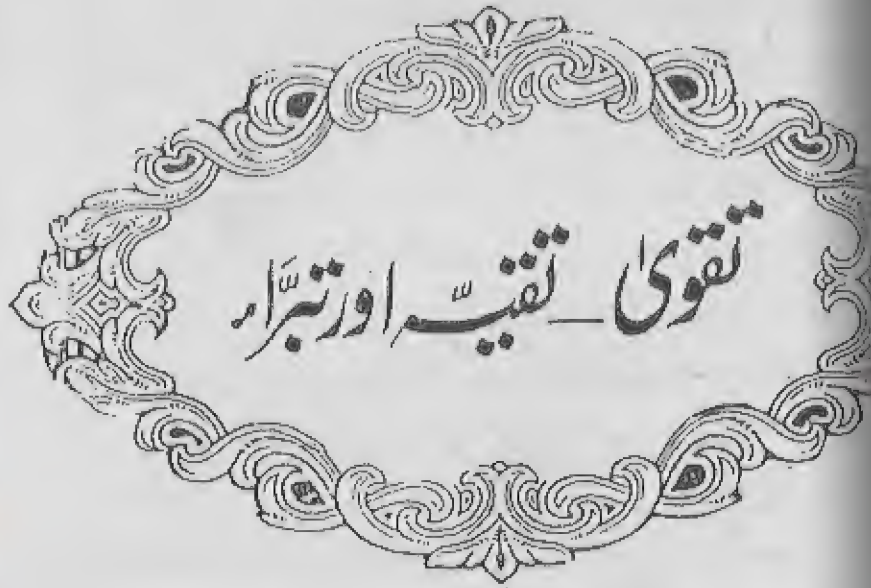 تقویٰ ـ تقیّہ اور تبرّاء